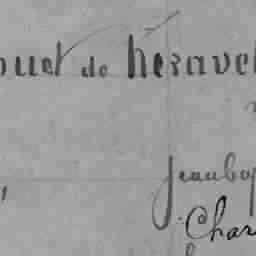 ouet de Késavel
Jeanbap
Char